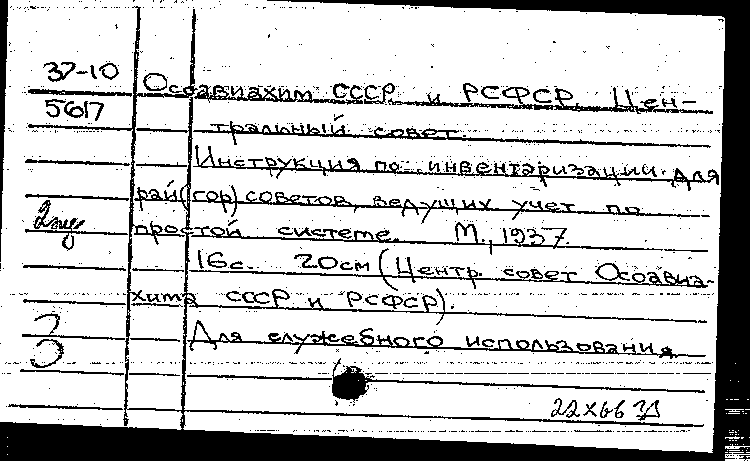 37-10
5617
Осоавиахим СССР и РСФСР. Цен-
тральный совет.
Инструкция по инвентаризации для
рай(гор)советов, ведущих учет по
простой системе. М., 1937.
16с. 20см (Центр. совет Осоавиа-
хима СССР и РСФСР).
Для служебного использования
3
22X66